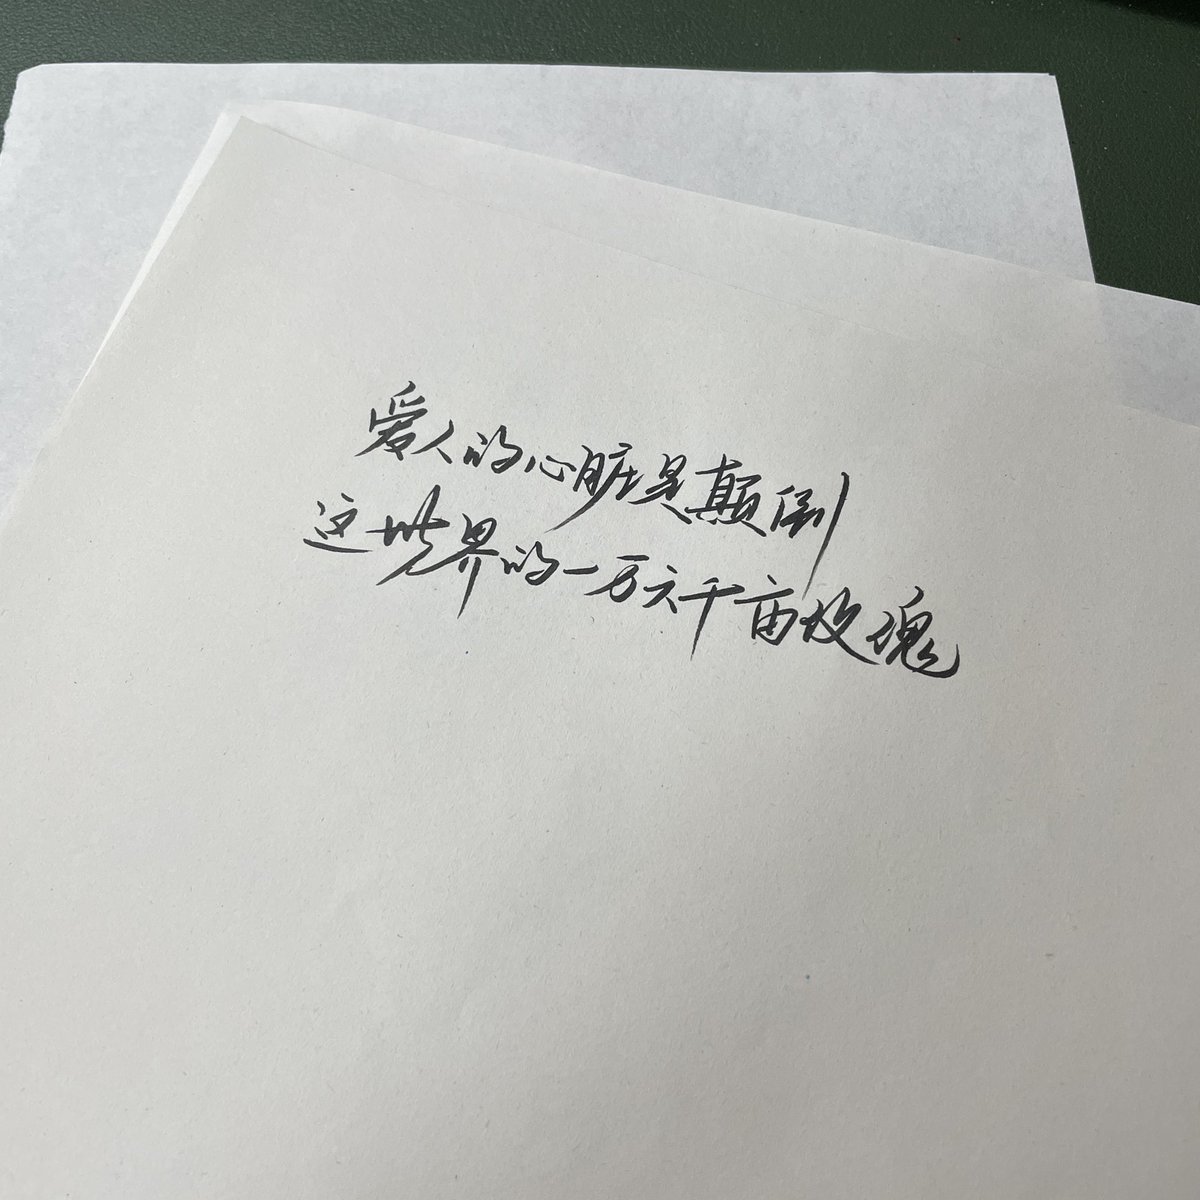 爱人的心脏是颠倒
这世界的一万六千亩玫瑰